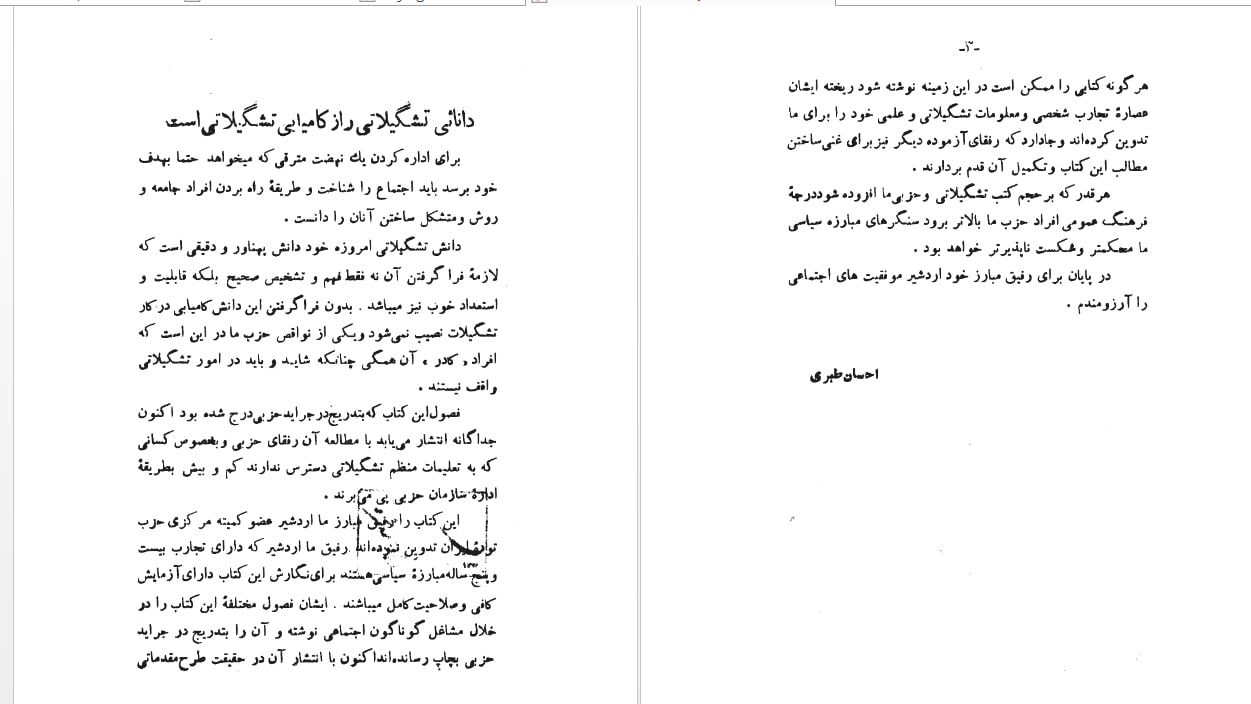 دانائی تشگیلاتی راز کامیابی تشگیلاتی است
برای اداره کردن یك نهضت مترقی که میخواهد حتما بهدف
خود برسد باید اجتماع را شناخت و طریقهٔ راه بردن افراد جامعه و
روش ومتشکل ساختن آنان را دانست .
دانش تشگیلاتی امروزه خود دانش پهناور و دقیقی است که
لازمهٔ فرا گرفتن آن نه فقط فهم و تشخیص صحیح بلکه قابلیت و
استعداد خوب نیز میباشد . بدون فراگرفتن این دانش کامیابی در کار
تشگیلات نصیب نمی‌شود ویکی از نواقص حزب ما در این است که
افراد « کادر » آن همگی چنانکه شاید و باید در امور تشگیلاتی
واقف نیستند .
فصول این کتاب که بتدریج در جراید حزبی درج شده بود اکنون
جداگانه انتشار می‌یابد با مطالعه آن رفقای حزبی وبخصوص کسانی
که به تعلیمات منظم تشگیلاتی دسترس ندارند کم و بیش بطریقهٔ
ادارهٔ سازمان حزبی پی می‌برند .
این کتاب را رفیق مبارز ما اردشیر عضو کمیته مرکزی حزب
تودهٔ ایران تدوین نموده‌اند رفیق ما اردشیر که دارای تجارب بیست
وپنج ساله مبارزهٔ سیاسی هستند برای نگارش این کتاب دارای آزمایش
کافی وصلاحیت کامل میباشند . ایشان فصول مختلفهٔ این کتاب را در
خلال مشاغل گوناگون اجتماعی نوشته و آن را بتدریج در جراید
حزبی بچاپ رسانده‌اند اکنون با انتشار آن در حقیقت طرح مقدماتی
-۳-
هر گونه کتابی را ممکن است در این زمینه نوشته شود ریخته ایشان
عصارهٔ تجارب شخصی ومعلومات تشگیلاتی و علمی خود را برای ما
تدوین کرده‌اند وجادارد که رفقای آزموده دیگر نیز برای غنی ساختن
مطالب این کتاب وتکمیل آن قدم بردارند .
هر قدر که بر حجم کتب تشگیلاتی وحزبی ما افزوده شود درجهٔ
فرهنگ عمومی افراد حزب ما بالاتر برود سنگرهای مبارزه سیاسی
ما محکمتر وشکست ناپذیرتر خواهد بود .
در پایان برای رفیق مبارز خود اردشیر موفقیت های اجتماعی
را آرزومندم .
احسان طبری